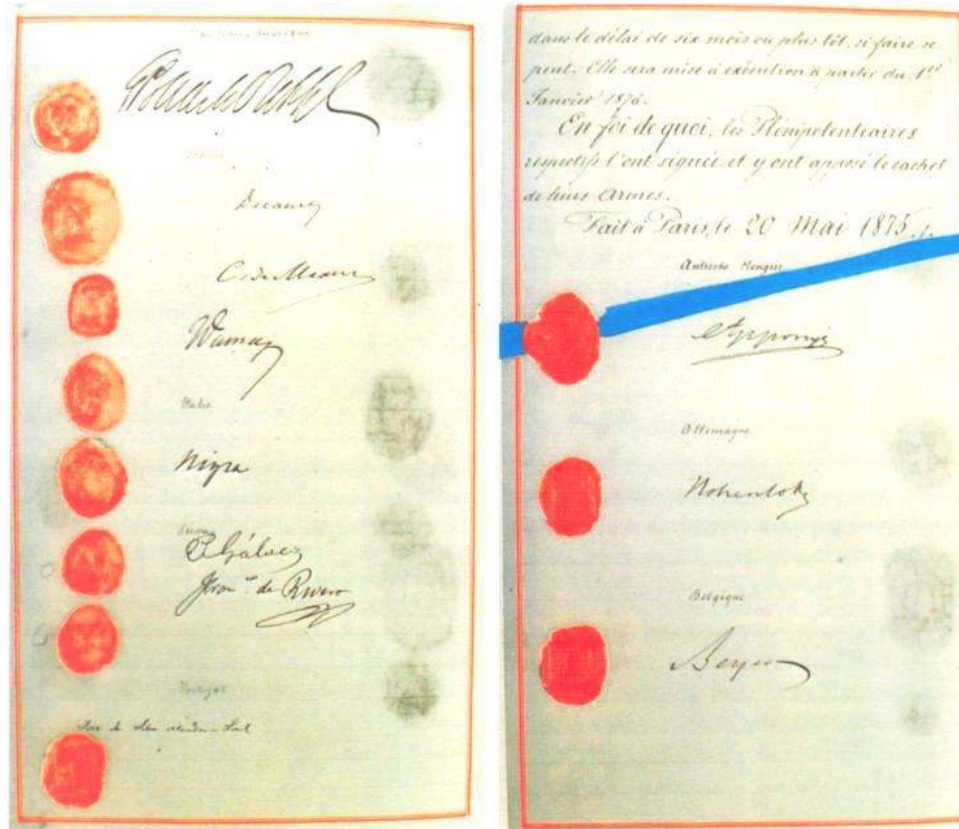 Decazes
C. de Meaux
Nigra
P. Gálvez
Fran.co de Rivero
Portugal
José da Silva Mendes Leal
dans le délai de six mois ou plus tôt, si faire se
peut. Elle sera mise à exécution à partir du 1er
Janvier 1876.
En foi de quoi, les Plénipotentiaires
respectifs l'ont signée et y ont apposé le cachet
de leurs armes.
Fait à Paris, le 20 Mai 1875.
Autriche Hongrie
Apponyi
Allemagne
Hohenlohe
Belgique
Beyens